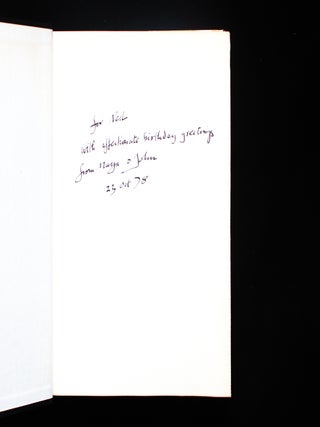 for Neil
with affectionate birthday greetings
from & John
23 Oct 78